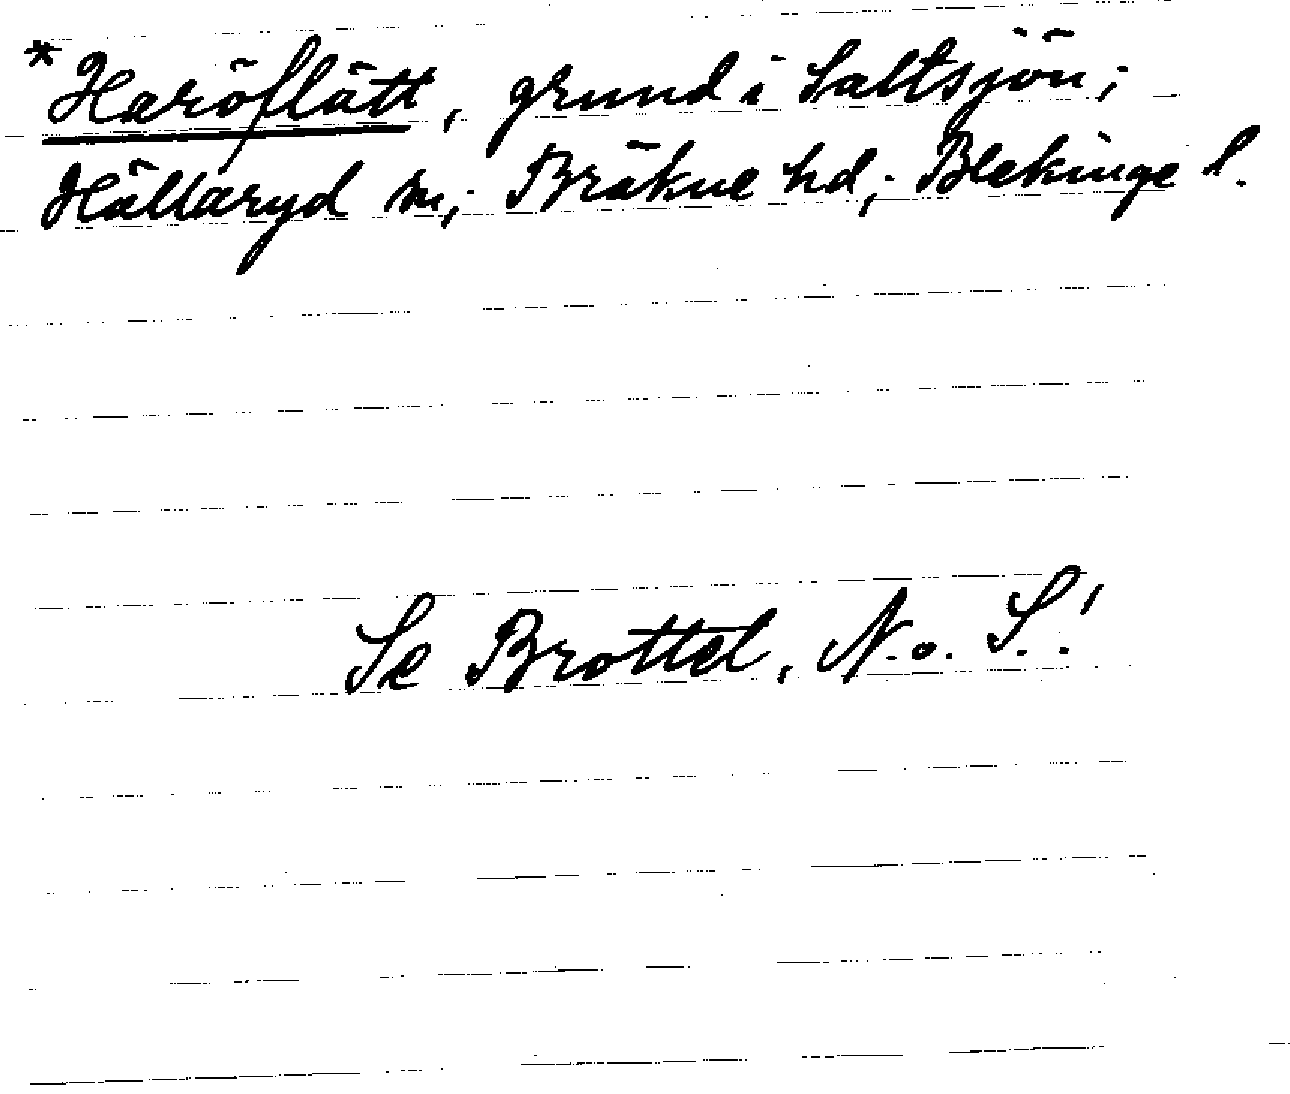 *Haröflätt, grund i Saltsjön;
Hällaryd sn; Bräkne hd; Blekinge l.
Se Brottel, N.o. S.!